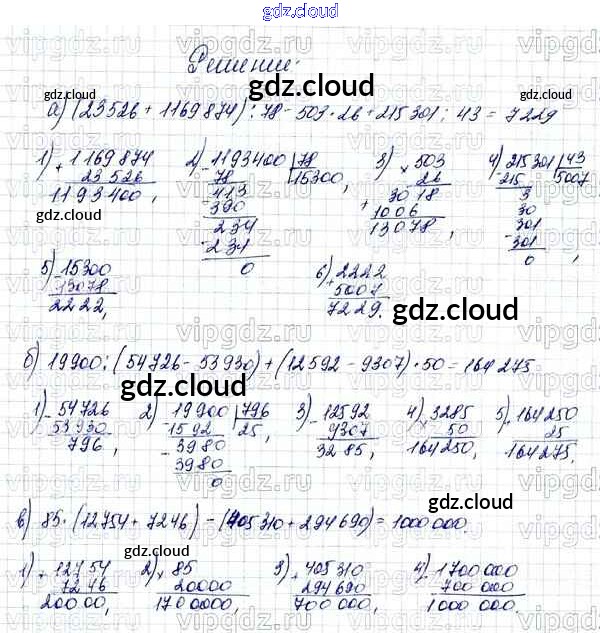 gdz.cloud
gdz.cloud
Решение:
gdz.cloud
а) (23526 + 1169874) : 78 - 503 · 26 + 215301 : 43 = 7229
1) + 1169874 2) - 1193400 | 78 3) × 503 4) - 215301 | 43
23526 78 15300, 26 215 5007
1193400, - 413 3018 3
390 + 1006 30
- 234 13078, - 301
234 301
0 0,
gdz.cloud
gdz.cloud
5) - 15300 6) + 2222
13078 5007
2222, 7229.
gdz.cloud
gdz.cloud
б) 19900 : (54726 - 53930) + (12592 - 9307) · 50 = 164275
gdz.cloud
1) - 54726 2) - 19900 | 796 3) - 12592 4) × 3285 5) + 164250
53930 1592 25, 9307 50 25
796, - 3980 3285, 164250, 164275.
3980
0
gdz.cloud
gdz.cloud
в) 85 · (12754 + 7246) - (405310 + 294690) = 1000000.
gdz.cloud
1) + 12754 2) × 85 3) + 405310 4) - 1700000
7246 20000 294690 700000
20000, 1700000, 700000, 1000000.
gdz.cloud